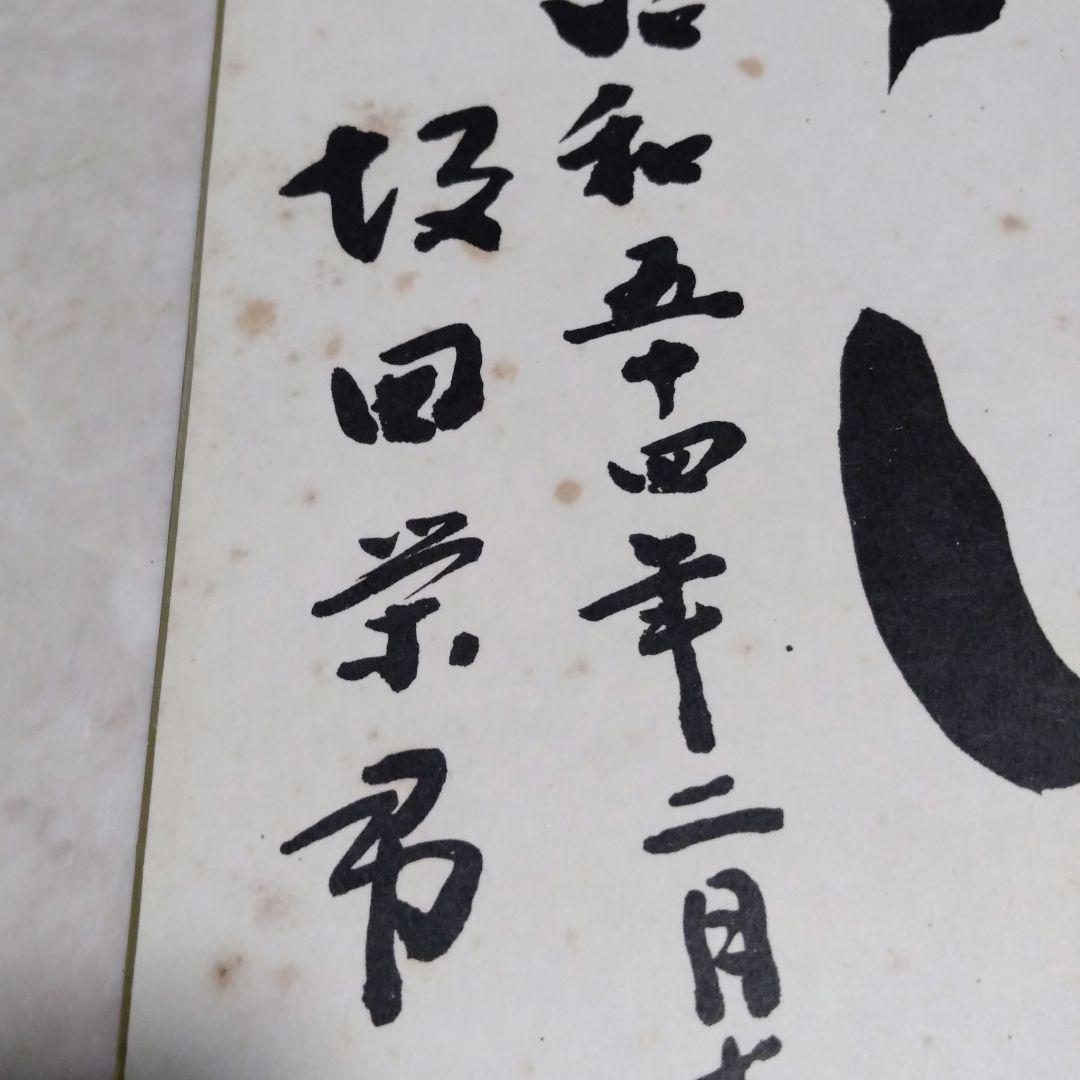 昭和五十四年二月
坂田栄一